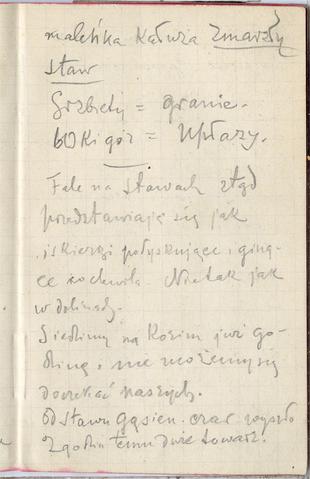 maleńka kałuża Zmarzły
staw
Grzbiety = granie.
bOKi gór = Upłazy.
Fale na stawach stąd
przedstawiają się jak
iskierki połyskujące i giną-
ce co chwila. Nie tak jak
w dolinach.
Siedzimy na Kozim już go-
dzinę, i nie możemy się
doczekać naszych.
Od stawu Gąsien. oraz wyszło
2 godzin temu duże towarz.